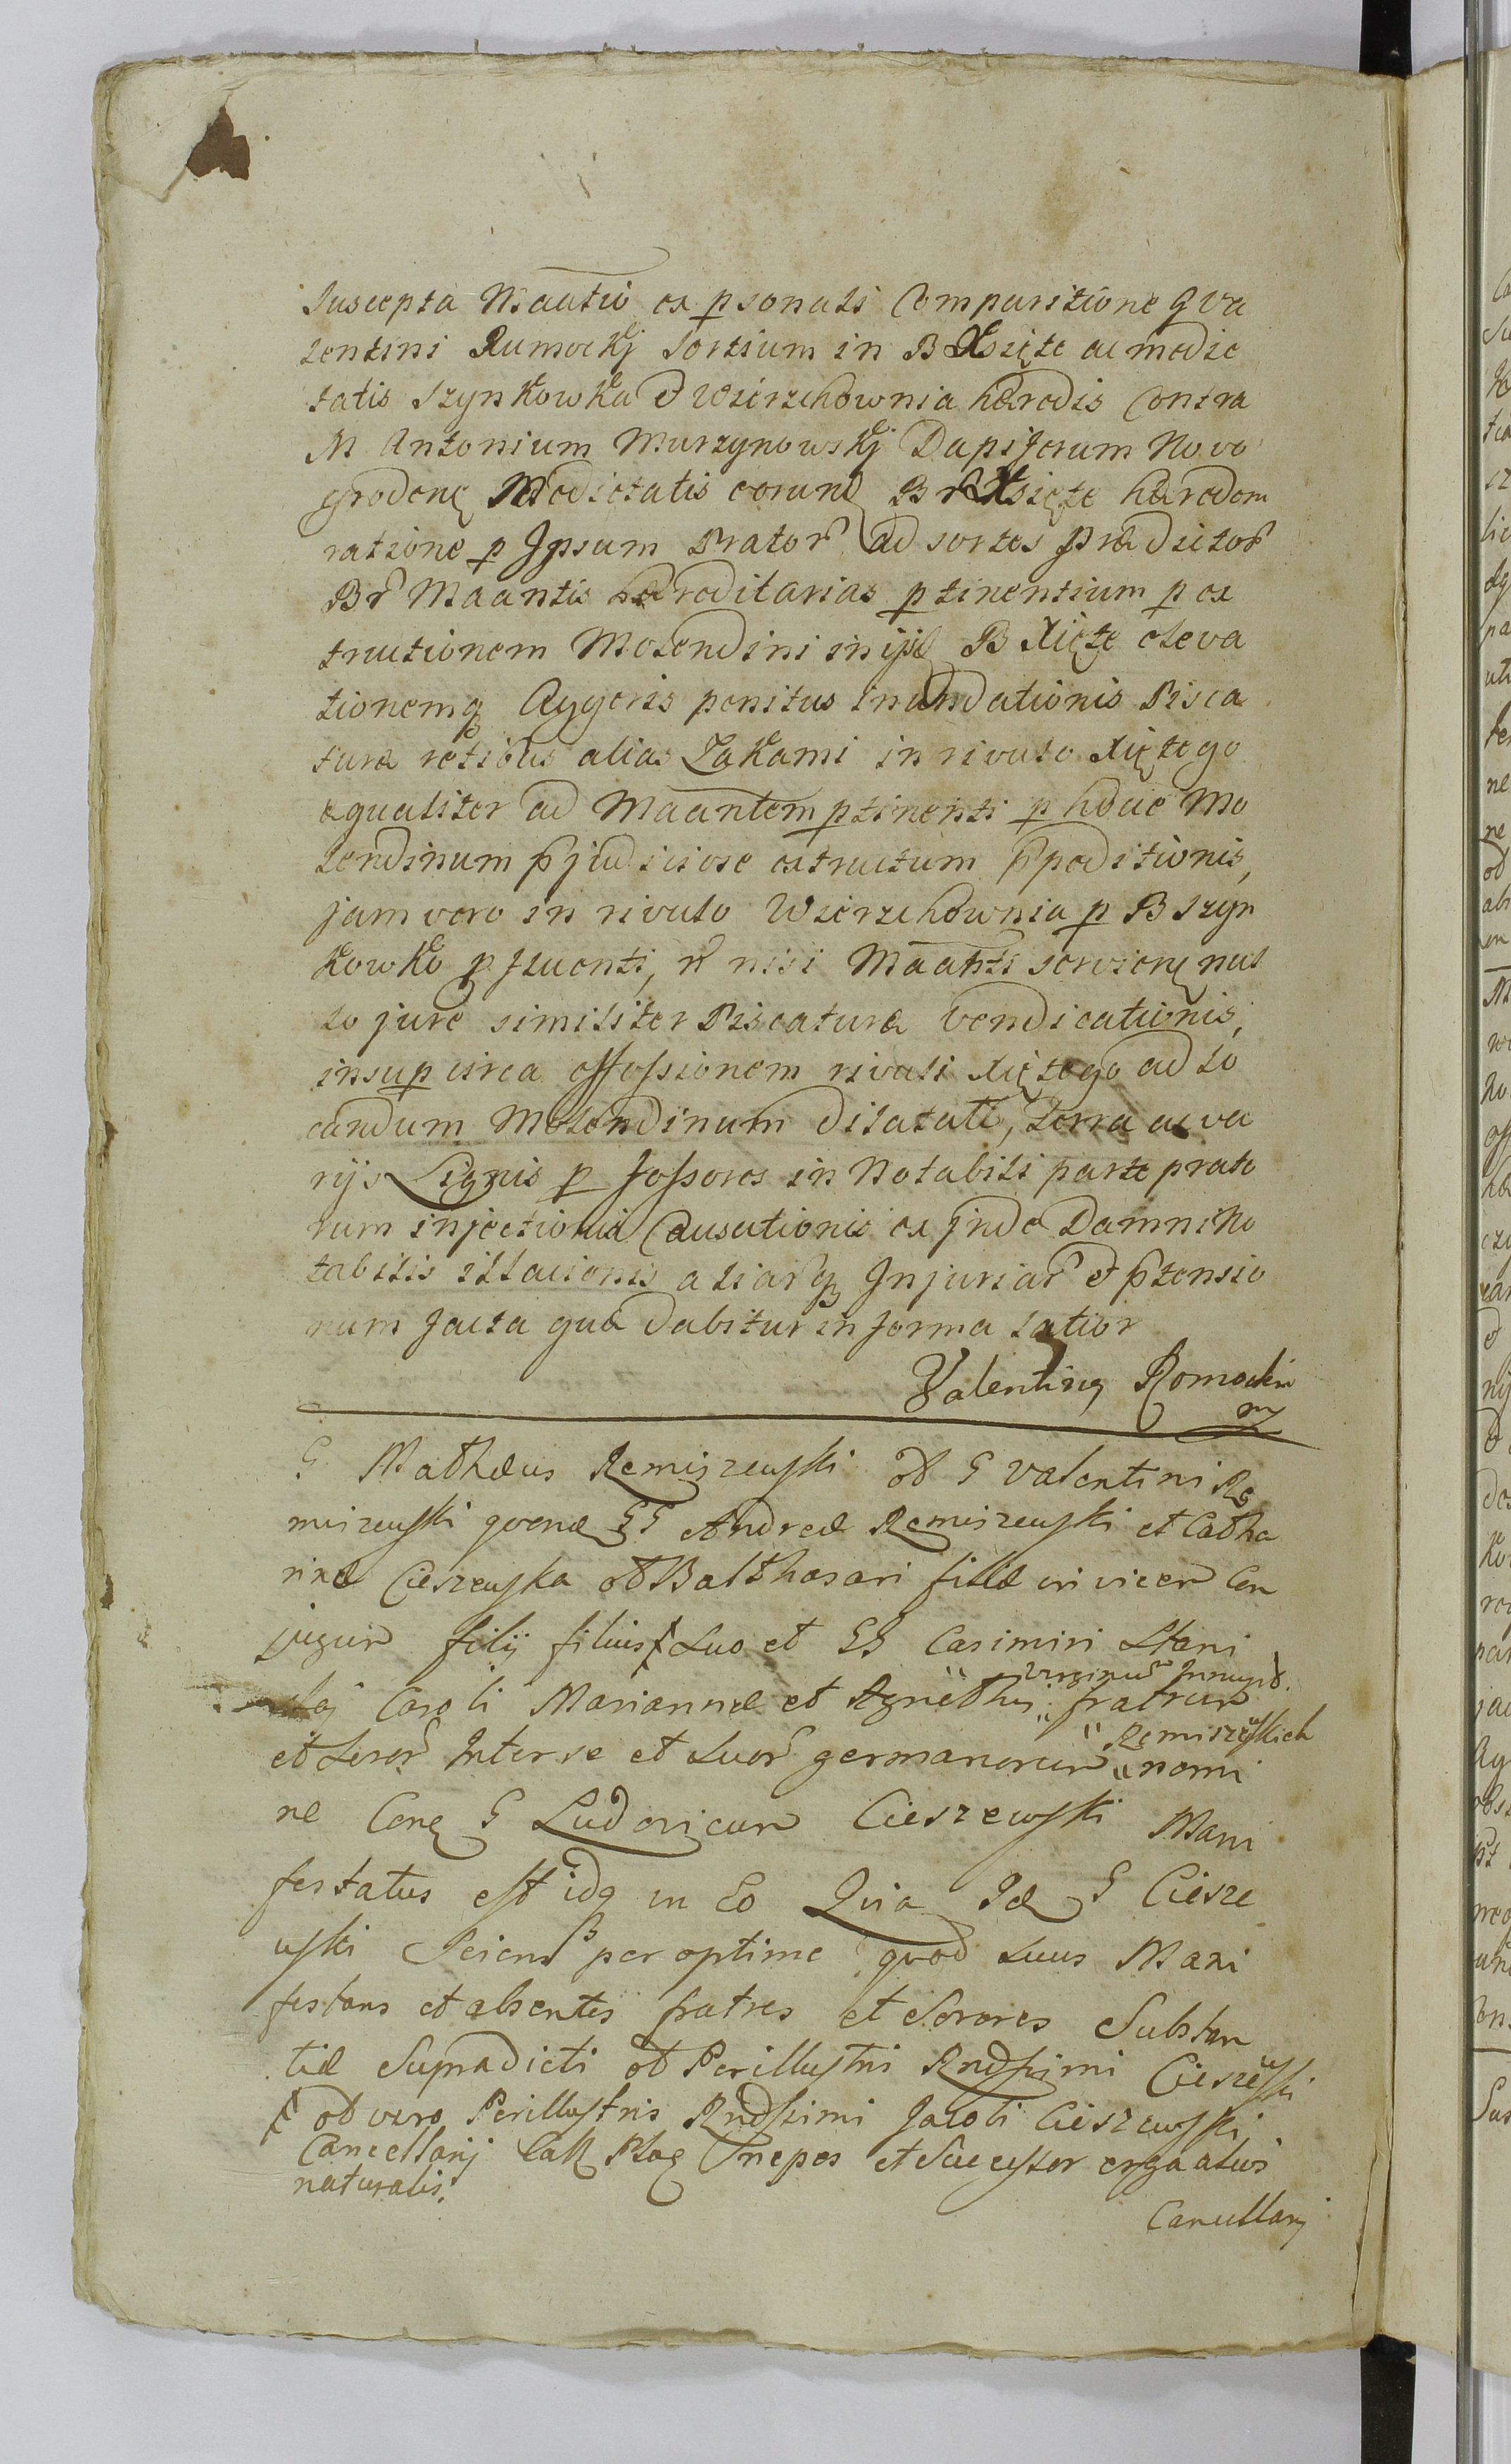 Suscepta Maãtio ex psonali Comparitione G Va
lentini Rumockj Sortium in B Xsięte ac medie
tatis Szynkowka et Wierzchownia hæredis Contra
M Antonium Murzynowskj Dapiferum Novo
grodens Medietatis eorund Br Xsięte hæredem
ratione p Ipsum Prator ad sortes Prædictor
Br Maantis hæreditarias ptinentium p ex
tructionem Molendini in ijsd B Xięte eleva
tionemq Aggeris penitus inundationis Pisca
turæ retibus alias Zakami in rivulo Xiętego
equaliter ad Maantem ptinenti p hocce Mo
lendinum pjudiciose extructum ppeditionis,
jam vero in rivulo Wierzchownia p B Szyn
kowko pfluenti, n nisi Maanti servien nul
lo jure similiter Piscaturæ vendicationis,
insup circa effossionem rivuli Xiętego ad lo
candum Molendinum dilatati, terra ac va
rijs Lignis p fossores in Notabili parte prato
rum injectionis Causationis ex inde Damni No
tabilis illacionis aliarq Injuriar et ptensio
num facta quæ dabitur in forma latior
Valenting Romocki
mp
G Mathæus Remiszewski ol G Valentini Re
miszewski quond GG Andreæ Remiszewski et Catha
rinæ Cieszewska ol Balthasari filiæ invicem Con
jugum filij filius Suo et GG Casimiri Stani
slaj Caroli Mariannæ et Agnethis virginum Innupt. fratrum
et Soror Inter se et Suor germanorum Remiszewskich nomi
ne Cong G Ludovicum Cieszewski Mani
festatus est idq in Eo Quia Id G Ciesze
wski Sciens per optime quod Suus Mani
festans et absentes fratres et Sorores Substan
tiæ Supradicti ol Perillustris Rndssimi Cieszewski
ol vero Perillustris Rndssimi Jacobi Cieszewski
Cancellarij Cath Ploc nepos et Successor ergaatus
naturalis.
Cancellarij